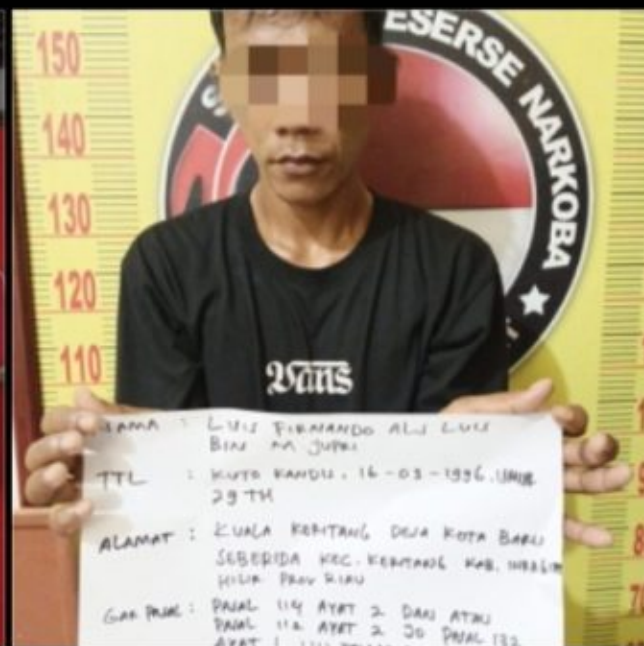 150
140
130
120
110
ESERSE NARKOBA
Vans
NAMA : LUIS FIRNANDO ALS LUIS
BIN M JUPRI
TTL : KUTO KANDIS, 16-03-1996. UMUR
29 TH
ALAMAT : KUALA KERITANG DESA KOTA BARU
SEBERIDA KEC. KERITANG KAB. INRAGIRI
HILIR PROV RIAU
GAR PASAL : PASAL 114 AYAT 2 DAN ATAU
PASAL 112 AYAT 2 JO PASAL 132
AYAT 1